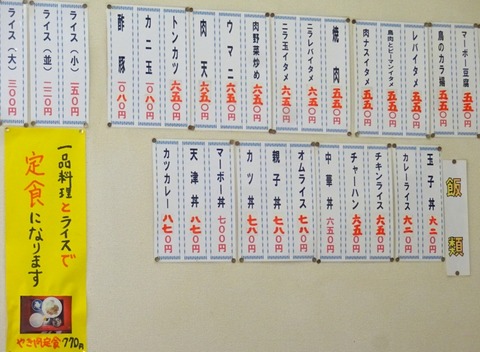 マーボー豆腐 五五〇円
鳥のカラ揚 五五〇円
レバイタメ 五五〇円
鳥肉とピーマンイタメ 五五〇円
肉ナスイタメ 五五〇円
焼肉 六五〇円
ニラレバイタメ 六五〇円
ニラ玉イタメ 六五〇円
肉野菜炒め 六五〇円
ウマニ 六五〇円
肉天 六五〇円
トンカツ 六五〇円
カニ玉 一〇八〇円
酢豚 一〇八〇円
ライス(小) 一五〇円
ライス(並) 二二〇円
ライス(大) 三〇〇円
飯類
玉子丼 六二〇円
カレーライス 六二〇円
チキンライス 六五〇円
チャーハン 六五〇円
中華丼 六五〇円
オムライス 七八〇円
親子丼 七八〇円
カツ丼 七八〇円
マーボー丼 七〇〇円
天津丼 八七〇円
カツカレー 八七〇円
一品料理とライスで
定食になります
やき肉定食 770円